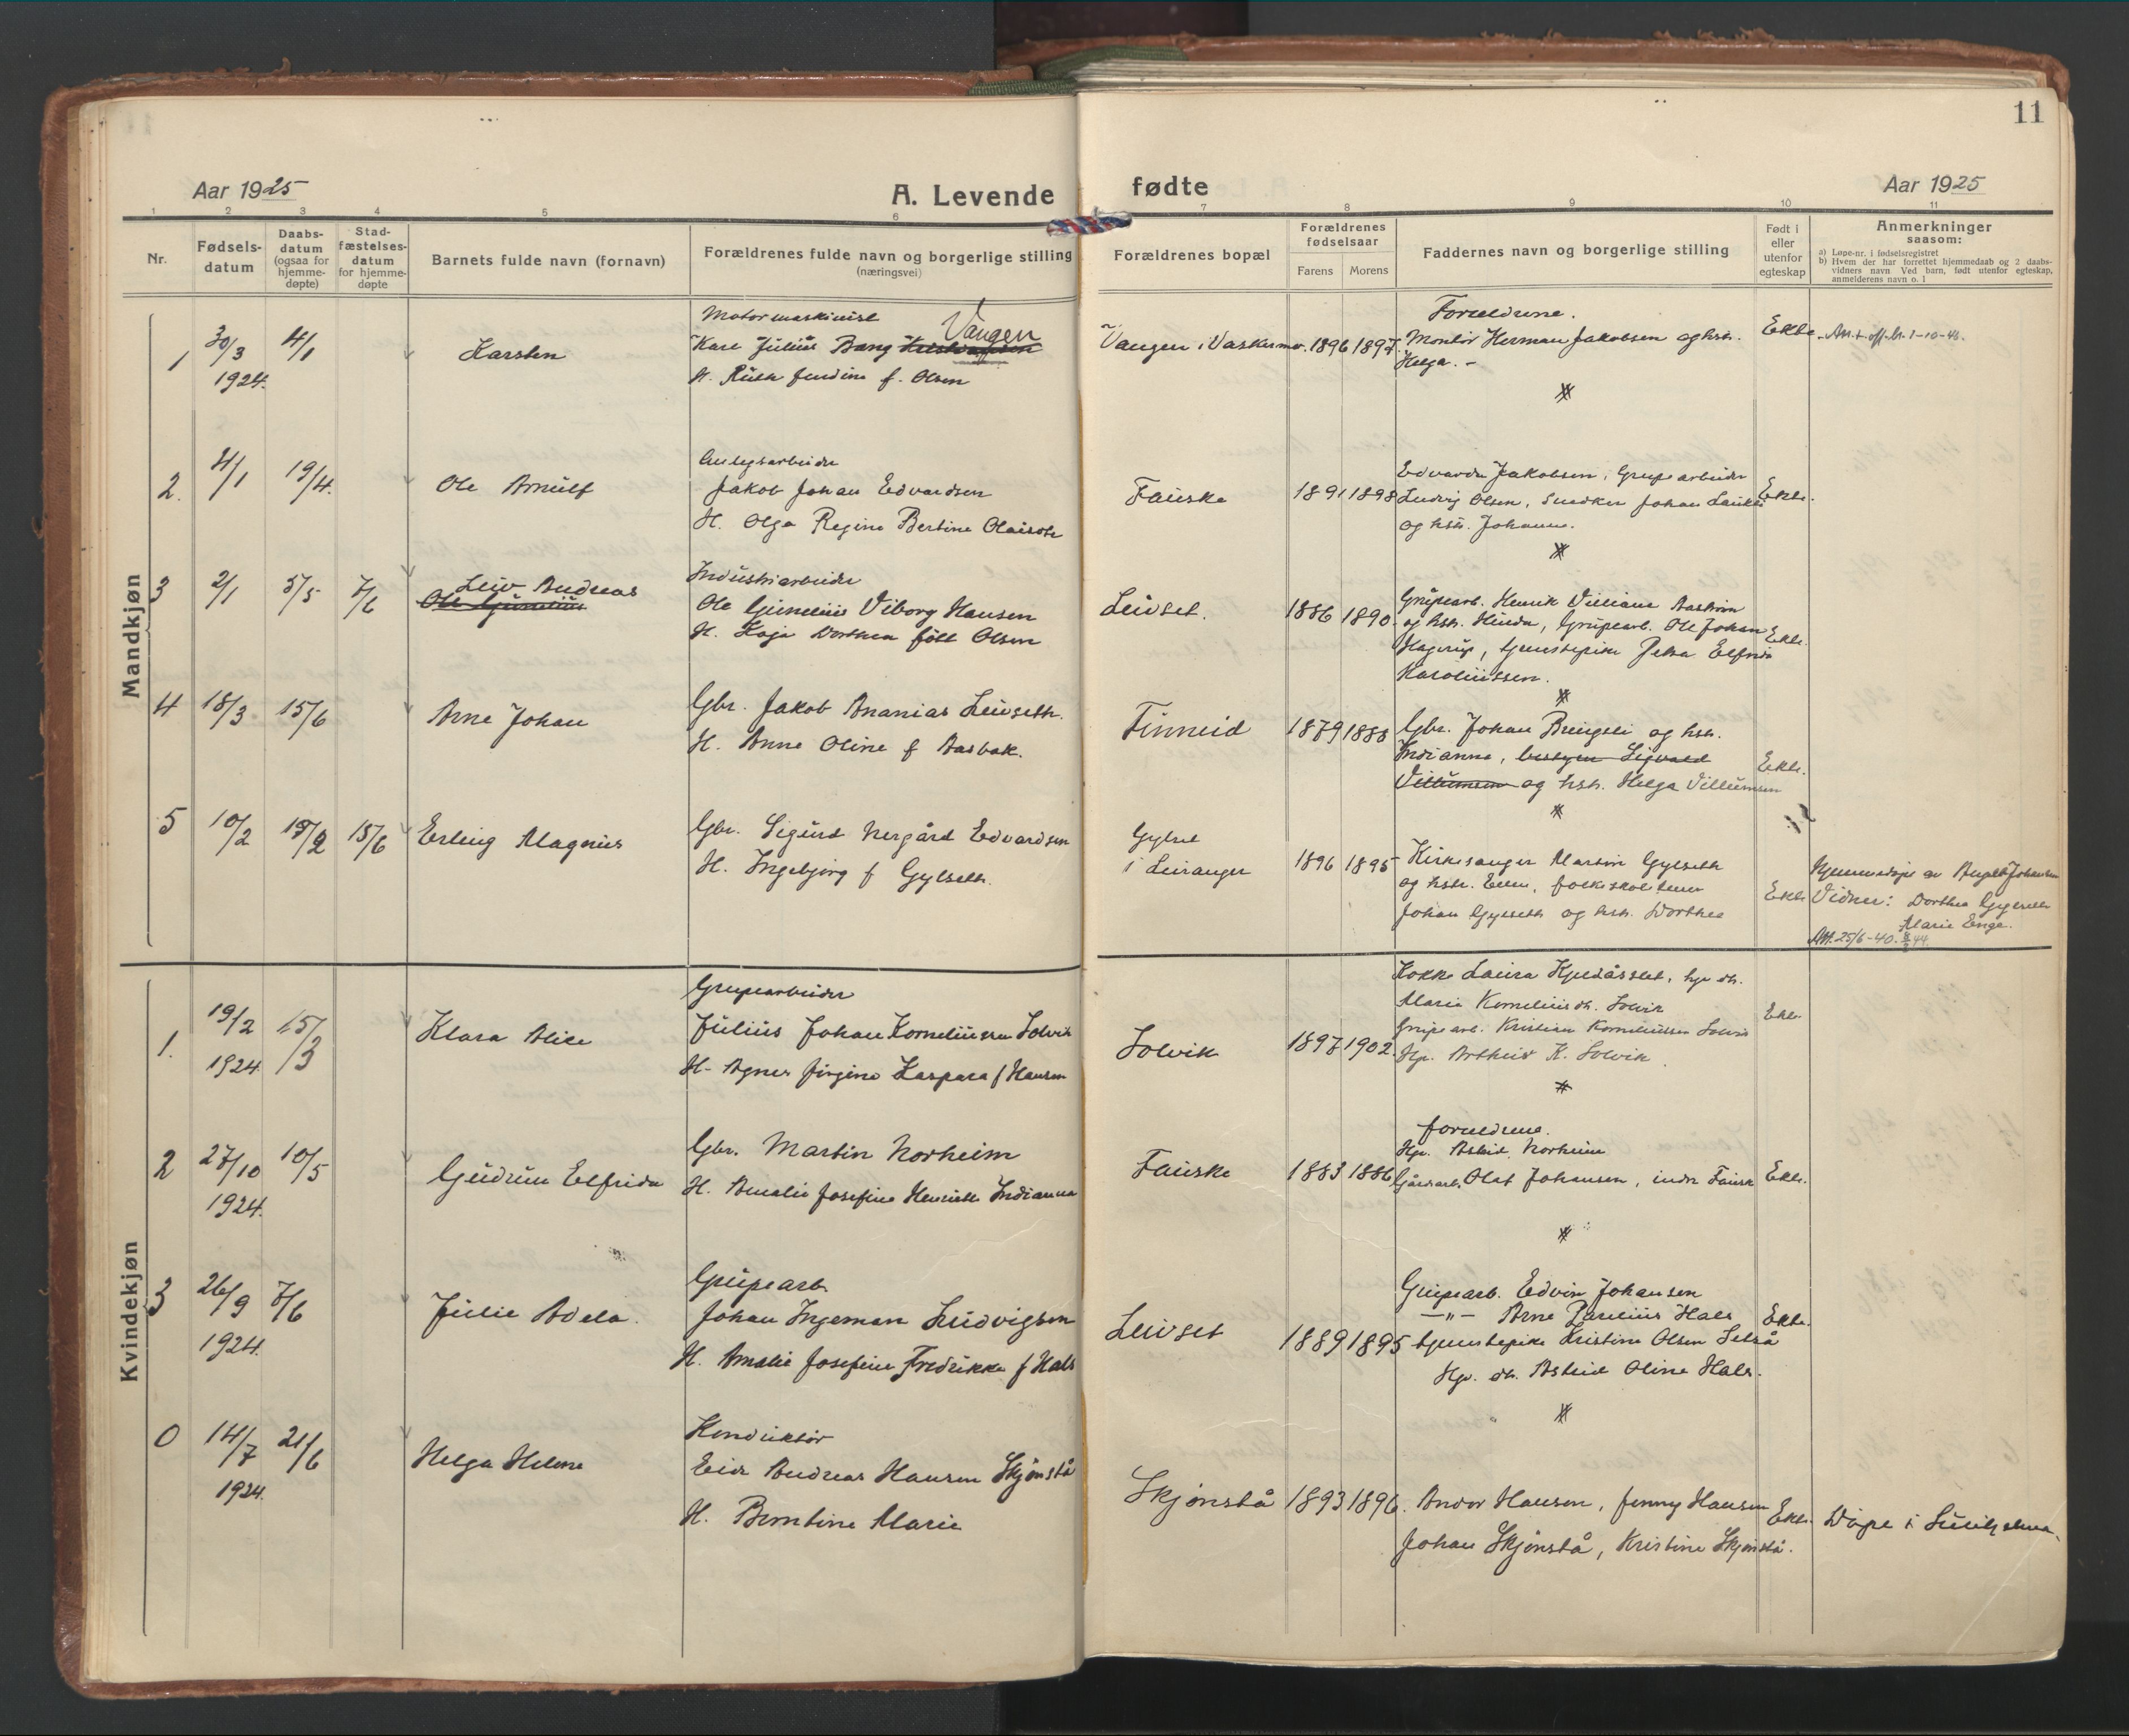 11
Aar 1925
A. Levende
fødte
Aar 1925
1 2 3 4 5 6 7 8 9 10 11
Nr.
Fødsels-
datum
Daabs-
datum
(ogsaa for
hjemme-
døpte)
Stad-
fæstelses-
datum
for hjemme-
døpte
Barnets fulde navn (fornavn)
Forældrenes fulde navn og borgerlige stilling
(næringsvei)
Forældrenes bopæl
Forældrenes
fødselsaar
Farens Morens
Faddernes navn og borgerlige stilling
Født i
eller
utenfor
egteskap
Anmerkninger
saasom:
a) Løpe-nr. i fødselsregistret
b) Hvem der har forrettet hjemmedaab og 2 daabs-
vidners navn Ved barn, født utenfor egteskap,
anmelderens navn o. l
Mandkjøn
1
30/3
1924.
4/1
Karsten
Motormaskinist
Vangen
Karl Julius Bang Kristiansen
H. Ruth Jendine f. Olsen
Vangen i Vaskermo.
1896 1897.
Forældrene.
Montør Herman Jakobsen og hstr.
Helga. –
Ekte
Att. t. off. br. 1-10-45.
2.
4/1
19/4.
Ole Arnulf
Anlegsarbeider
Jakob Johan Edvardsen
H. Olga Regine Bertine Olaisdtr
Fauske
1891 1898
Edvarda Jakobsen, Grupearbeider
Ludvig Olsen, Snedker Johan
og hstr. Johanna.
Ekte.
3
2/1
5/5
7/6
Leiv Andreas
Ole Gjimelius
Industriarbeider
Ole Gjimelius Viborg Hansen
H. Kaja Dorthea født Olsen
Leivset.
1886 1890.
Grupearb. Henrik Villiam Aastrøm
og hstr. Hinda, Grupearb. Ole Johan
Hagerup, tjenestepike Petra Elfrida
Karoliussen.
Ekte.
4
18/3
15/6
Arne Johan
Gbr. Jakob Ananias Leivseth.
H. Anna Oline f Aasbak.
Finneid
1879 1888
Gbr. Johan Bringsli og hstr.
Indianna, bestyrer Sigvald
Villumsen og hstr. Helga Villumsen
Ekte.
5
10/2
19/2
15/6
Erling Magnus
Gbr. Sigurd Nergård Edvardsen
H. Ingebjørg f Gylseth.
Gylset
i Leiranger
1896 1895
Kirkesanger Martin Gylseth
og hstr. Elen, folkeskolelærer
Johan Gylseth og hstr. Dorthea
Ekte
Hjemmedøpt av Johansen
Vidner: Dorthea Gylseth
Marie Enge.
Att. 25/6-40.
Kvindekjøn
1.
19/2
1924
15/3
Klara Alice
Grupearbeider
Julius Johan Korneliussen Solvik
H. Agnes Jirgine Kaspara f Hansen
Solvik
1897 1902.
Kokke Laura Kjeldåsset, hjv dt.
Maria Korneliusdt. Solvik
Grupearb. Kristian Korneliussen Solvik
Hjv. Arthur K. Solvik
Ekte
2
27/10
1924.
10/5
Gudrun Elfrida
Gbr. Martin Norheim
H. Amalie Josefine Henriette Indianna
Fauske
1883 1886
forældrene.
Hjv. Astrid Norheim
Gårdarb. Olaf Johansen, indre Fauske
Ekte.
3
26/9
1924.
7/6
Julie Adela.
Grupearb
Johan Ingeman Ludvigsen
H. Amalie Josefine Fredrikke f Hals
Leivset
1889 1895
Grupearb. Edvin Johansen
—"— Arne Parelius Hals
tjenestepike Kristine Olsen Setså
Hjv. dt. Astrid Oline Hals.
Ekte.
0
14/7
1924.
21/6
Helga Helene
Konduktør
Eidr Andreas Hansen Skjønstå
H. Berntine Marie
Skjønstå
1893 1896.
Andor Hansen, Jenny Hansen
Johan Skjønstå, Kristine Skjønstå.
Ekte.
Døpt i Sulitjelma.